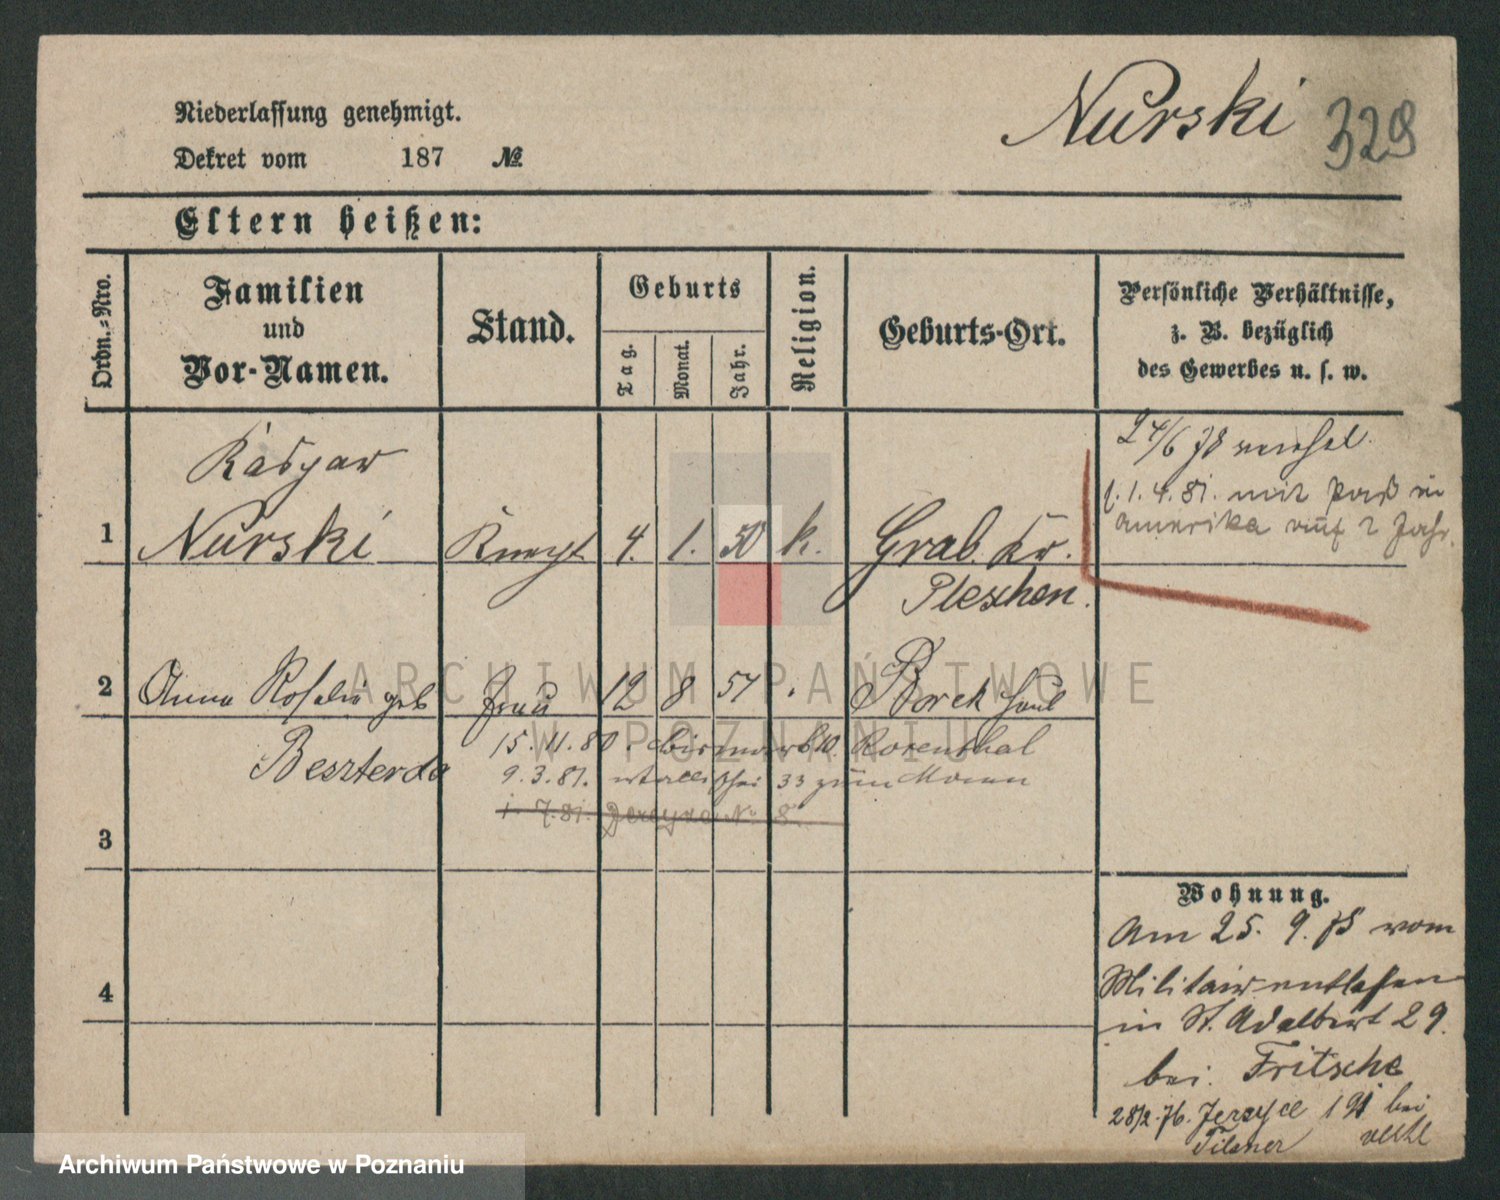 Nurski 329
Niederlassung genehmigt.
Dekret vom 187 №
Eltern heißen:
Ordn.-Nro.
Familien
und
Vor-Namen.
Stand.
Geburts
Tag.
Monat.
Jahr.
Religion.
Geburts-Ort.
Persönliche Verhältnisse,
z. B. bezüglich
des Gewerbes u. s. w.
Kaspar
1 Nurski Knecht 4. 1. 50 k. Grab. Kr.
Pleschen.
24/6 78
1. 4. 81. mit Paß in
Amerika auf 2 Jahr.
2 Anna Rosalie geb Frau 12 8 57 Borek
Beszterda
15. 11. 80. Rosenthal
9. 3. 81. Wallischei 33 zum Mann
7. 81. No 8
3
4
Wohnung.
Am 25. 9. 75 vom
Militair entlassen
in St. Adalbert 29.
bei Fritsche
28/2. 76. 191 bei
Pilsner
ARCHIWUM PAŃSTWOWE
W POZNANIU
Archiwum Państwowe w Poznaniu